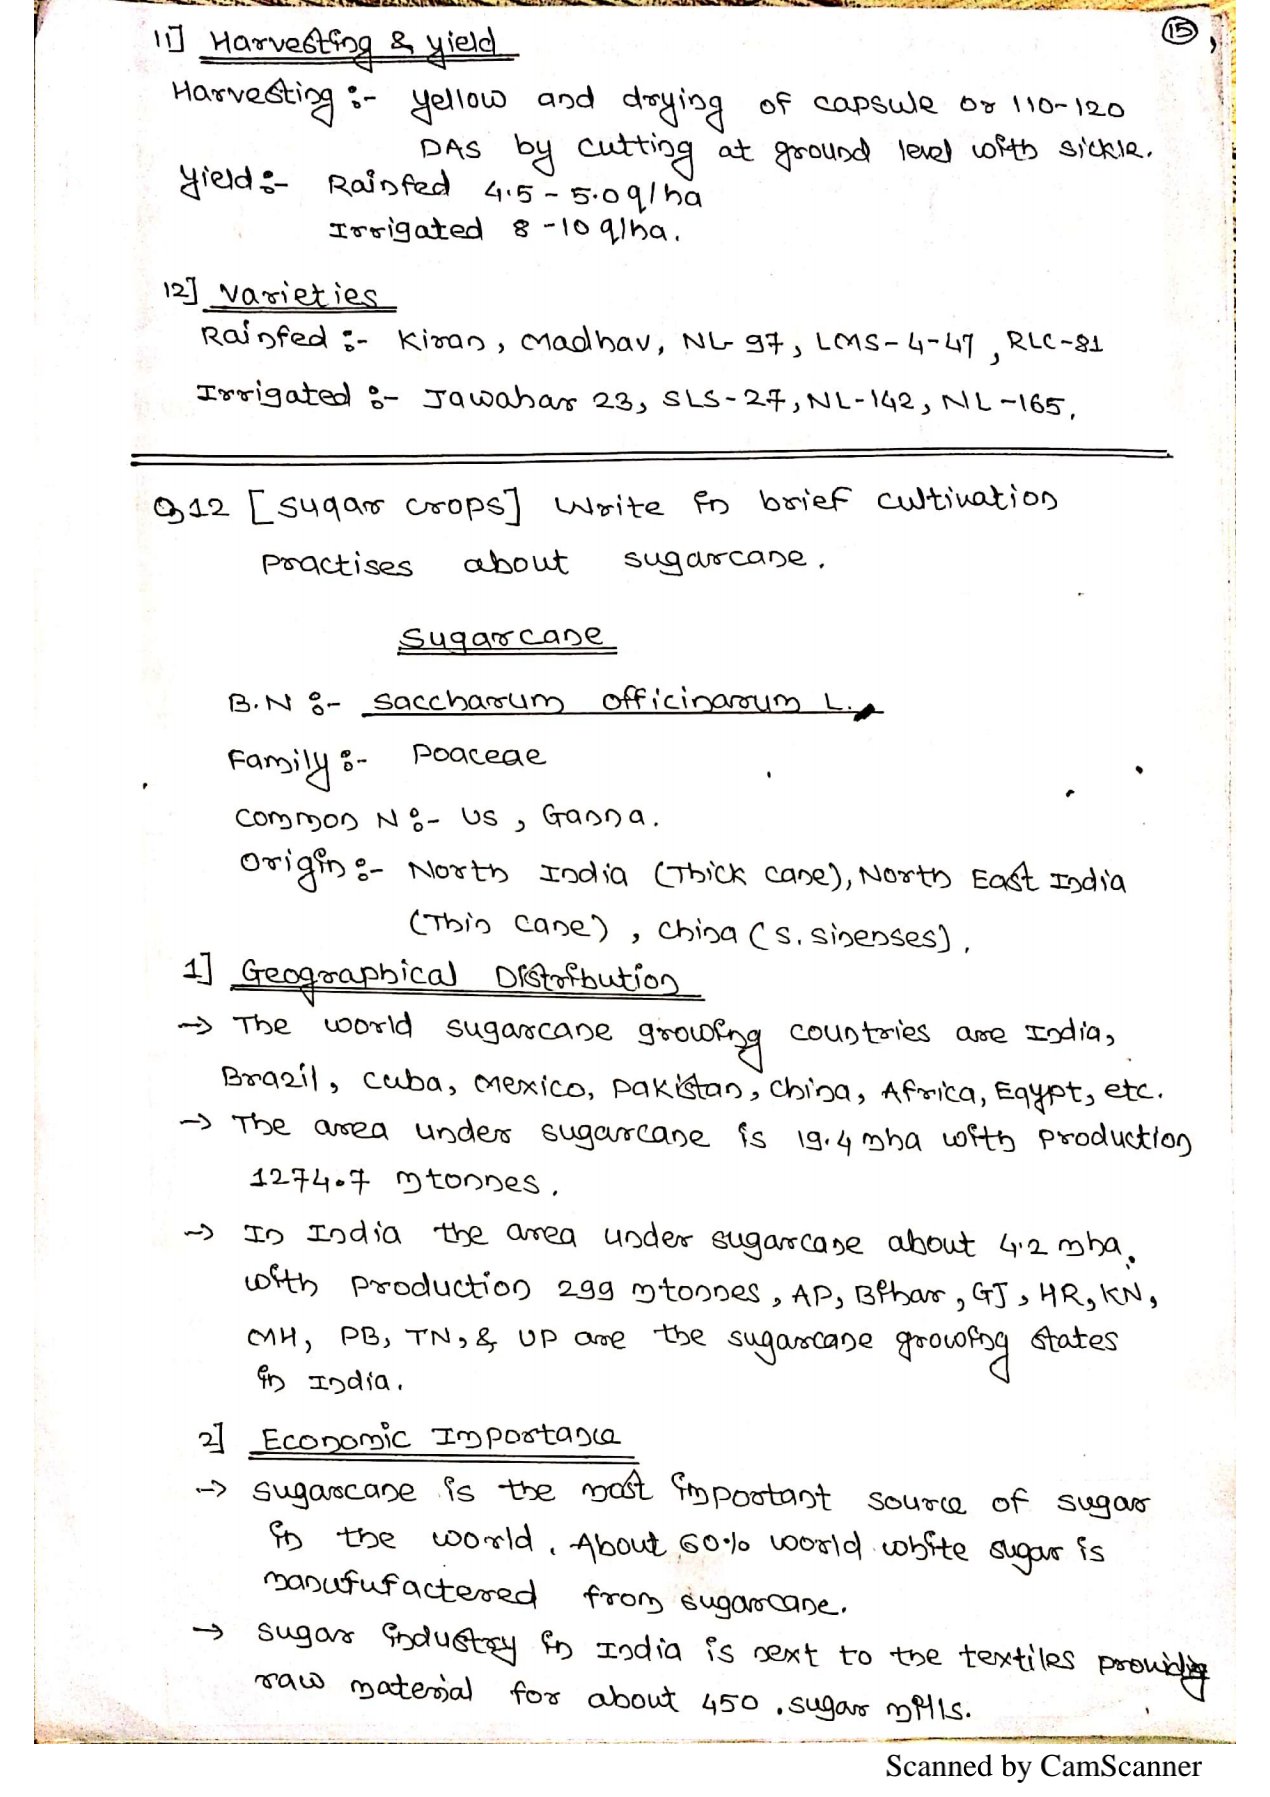 15
11] Harvesting & yield
Harvesting :- yellow and drying of capsule or 110-120
DAS by cutting at ground level with sickle.
Yield :- Rainfed 4.5 - 5.0 q/ha
Irrigated 8 -10 q/ha.
12] Varieties
Rainfed :- Kiran, Madhav, NL-97, LMS-4-47, RLC-81
Irrigated :- Jawahar 23, SLS-27, NL-142, NL-165.
Q12 [Sugar crops] Write in brief cultivation
practises about sugarcane.
Sugarcane
B.N :- Saccharum officinarum L.
Family :- Poaceae
Common N :- Us, Ganna.
Origin :- North India (Thick cane), North East India
(Thin cane), China (S. sinenses).
1] Geographical Distribution
→ The world sugarcane growing countries are India,
Brazil, Cuba, Mexico, Pakistan, China, Africa, Egypt, etc.
→ The area under sugarcane is 19.4 mha with production
1274.7 mtonnes.
→ In India the area under sugarcane about 4.2 mha.
with production 299 mtonnes, AP, Bihar, GJ, HR, KN,
MH, PB, TN, & UP are the sugarcane growing states
in India.
2] Economic Importance
→ sugarcane is the most important source of sugar
in the world. About 60% world white sugar is
manufufactered from sugarcane.
→ sugar industry in India is next to the textiles providing
raw material for about 450 . sugar mills.
Scanned by CamScanner